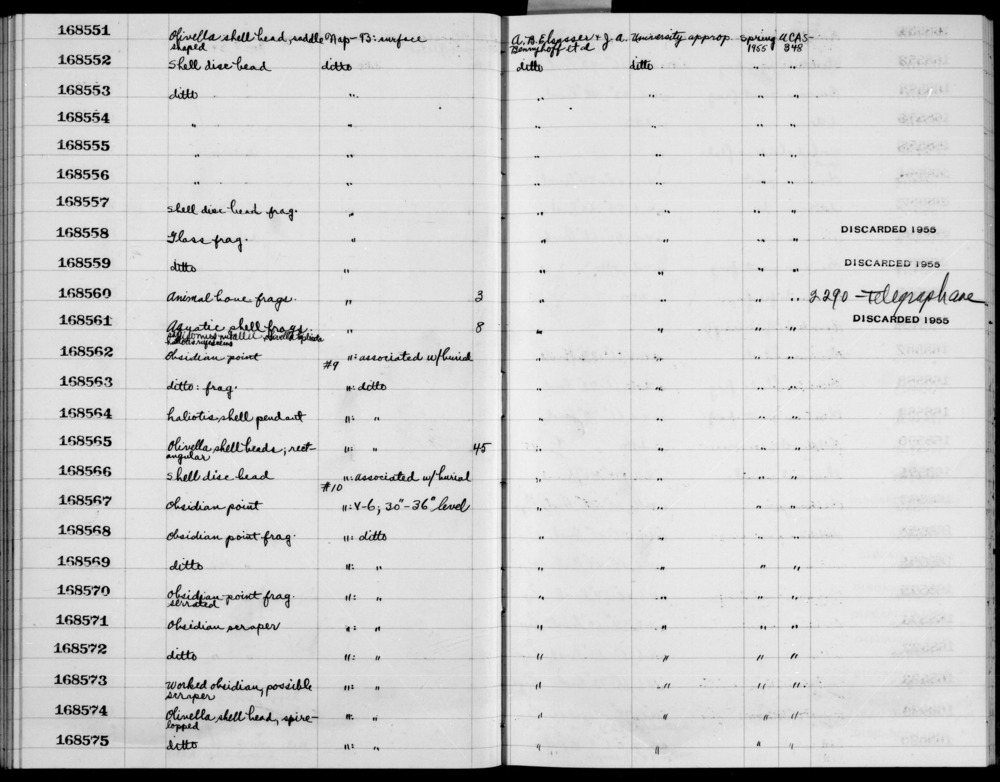 168551 Olivella shell bead, saddle Nap-B: surface A. B. Elsasser & J. A. University approp. Spring UCAS-
shaped Bennyhoff et al 1955 348
168552 Shell disc bead ditto ditto ditto " "
168553 ditto " " " " "
168554 " " " " " "
168555 " " " " " "
168556 " " " " " "
168557 Shell disc bead frag. " " " " "
168558 Glass frag. " " " " " DISCARDED 1955
168559 ditto " " " " " DISCARDED 1955
168560 Animal bone frags. " 3 " " " " 2290
168561 Aquatic shell frags. " 8 " " " " DISCARDED 1955
168562 Obsidian point ": associated w/burial " " " "
#9
168563 ditto: frag. ": ditto " " " "
168564 haliotis shell pendant ": " " " " "
168565 Olivella shell beads; rect- ": " 45 " " " "
angular
168566 Shell disc bead ": associated w/burial " " " "
#10
168567 Obsidian point ": Y-6; 30"-36" level " " " "
168568 Obsidian point frag. ": ditto " " " "
168569 ditto ": " " " " "
168570 Obsidian point frag. ": " " " " "
serrated
168571 Obsidian scraper ": " " " " "
168572 ditto ": " " " " "
168573 Worked obsidian, possible ": " " " " "
scraper
168574 Olivella shell bead, spire- ": " " " " "
lopped
168575 ditto ": " " " " "